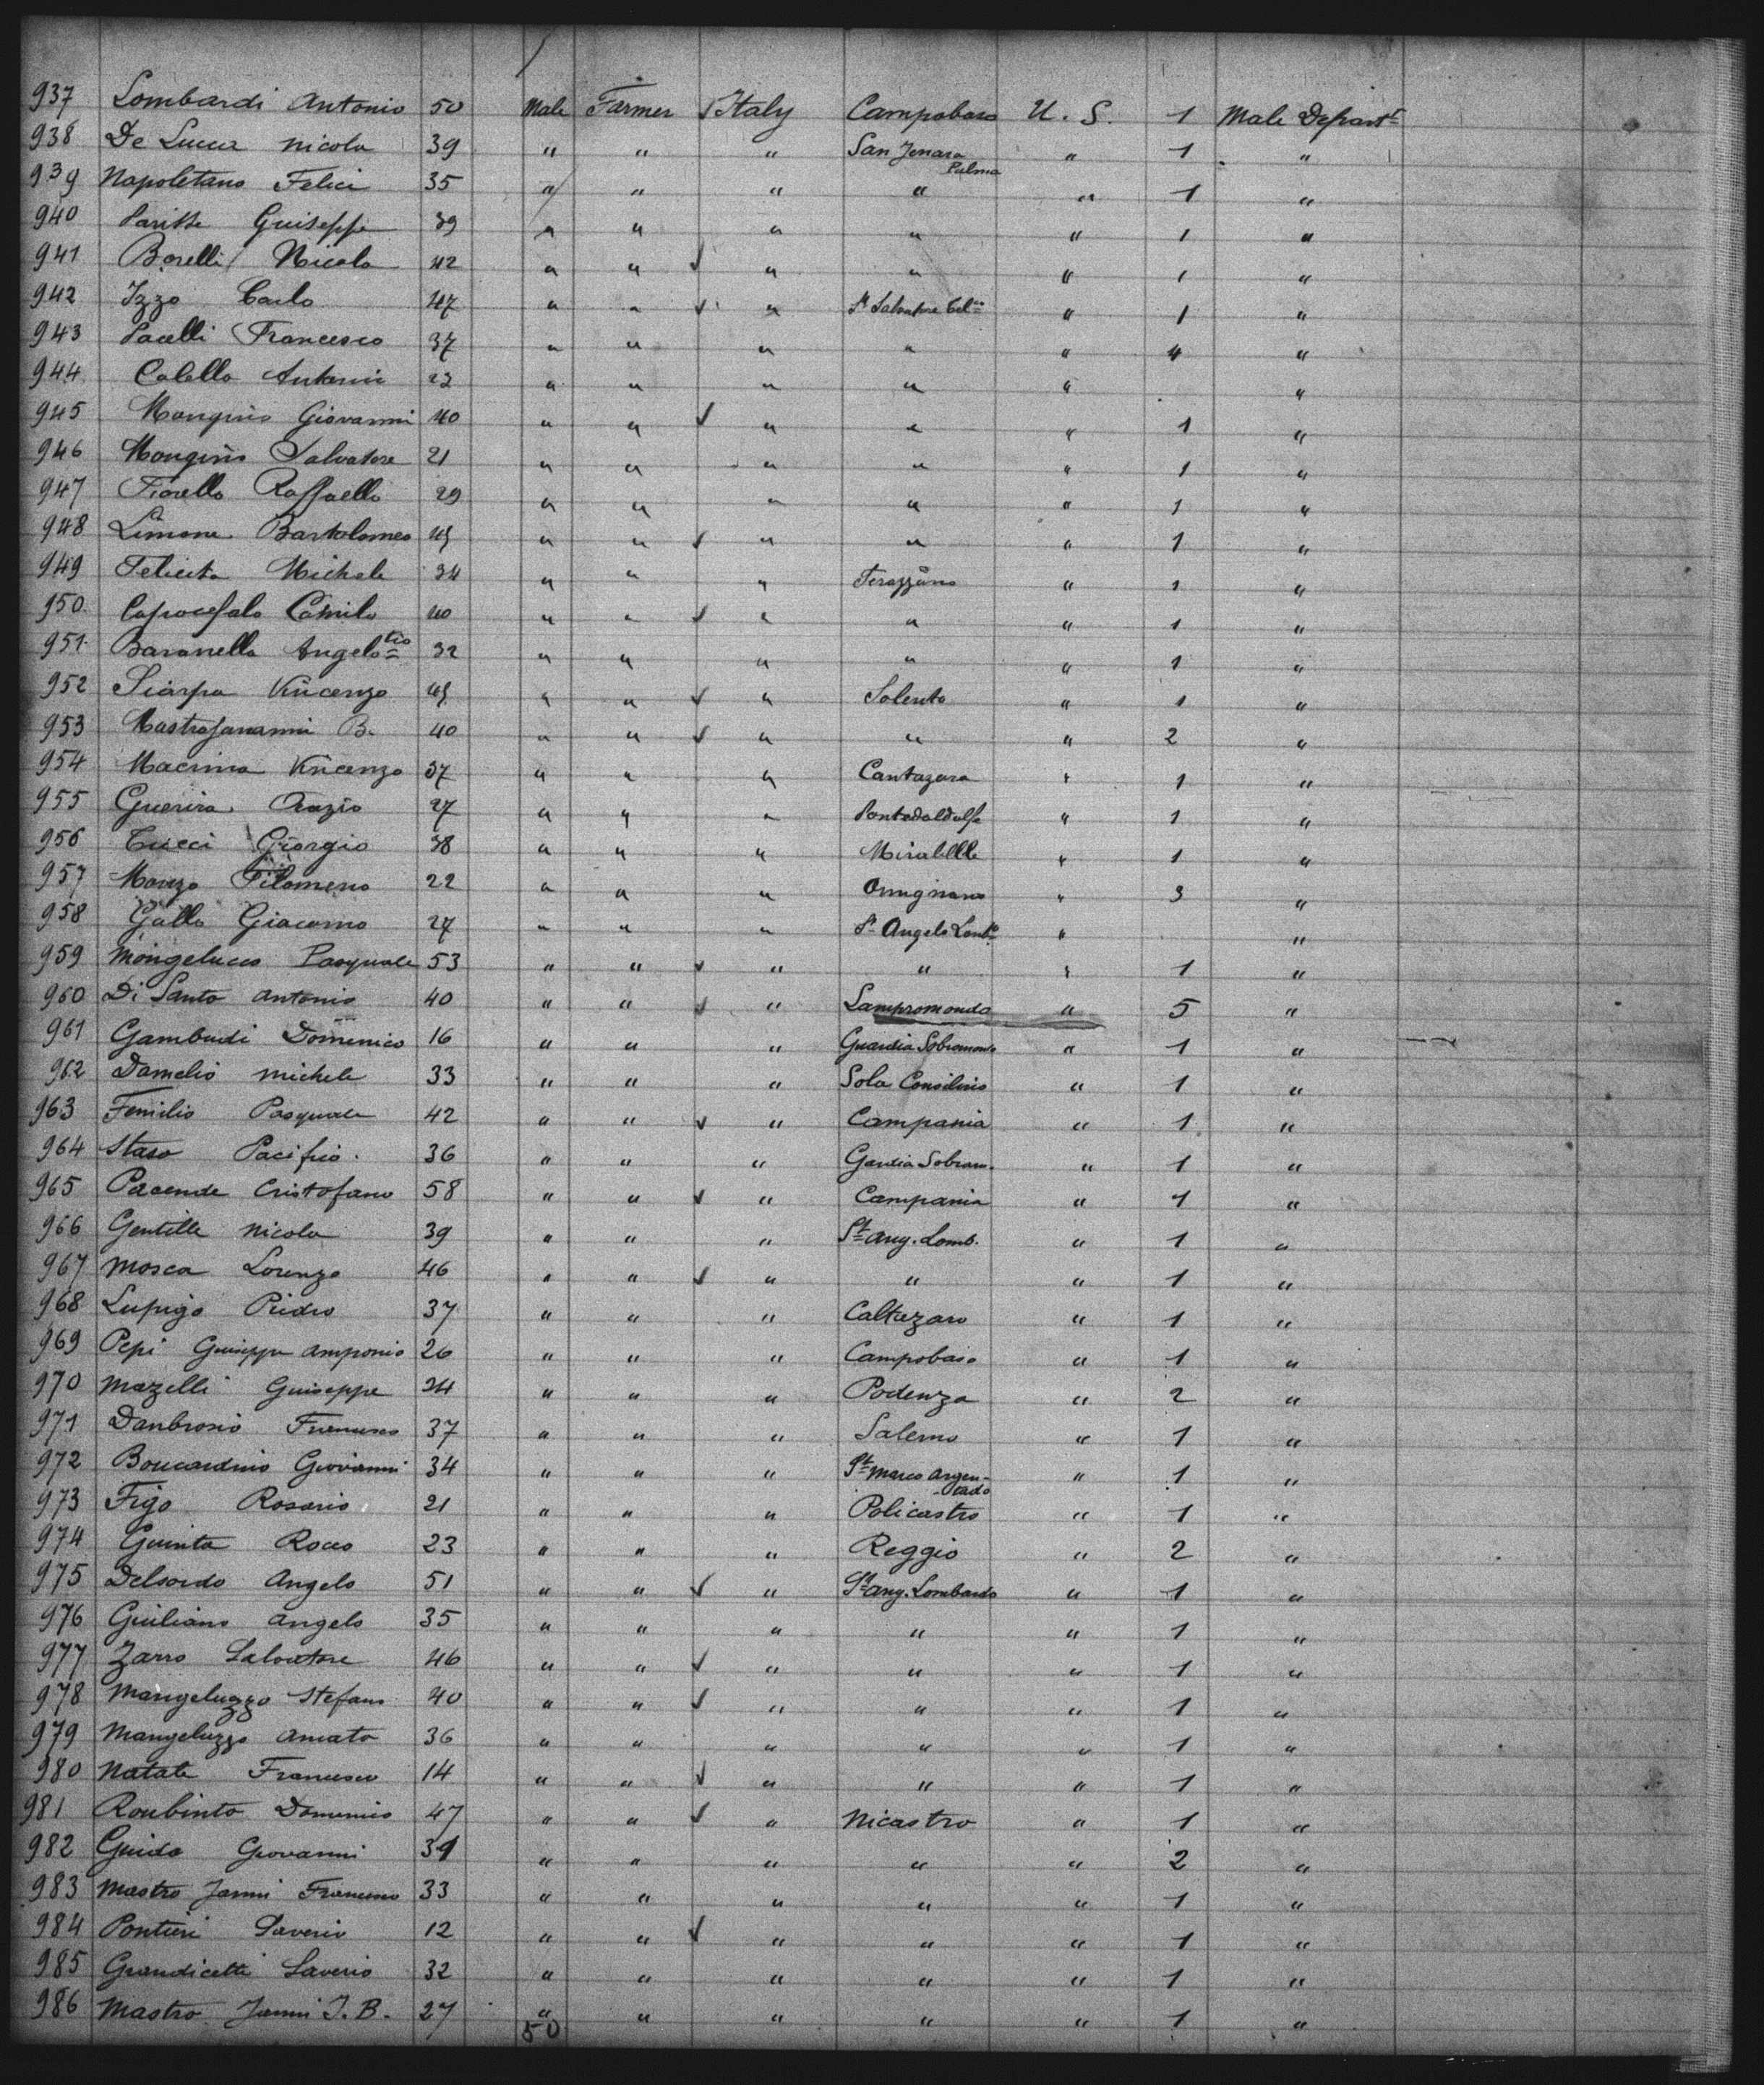 937 Lombardi Antonio 50 Male Farmer √ Italy Campobaso U. S. 1 Male Depart͟t
938 De Lucca Nicola 39 " " " San Jenara Palma " 1 "
939 Napoletano Felici 35 " " " " " 1 "
940 Guiseppe 39 " " " " " 1 "
941 Borelli Nicola 42 " " √ " " " 1 "
942 Izzo Carlo 47 " " √ " St Salvatore Tel " 1 "
943 Pacelli Francesco 37 " " " " " 4 "
944 Calella Antonio 23 " " " " " "
945 Giovanni 40 " " √ " " " 1 "
946 Salvatore 21 " " " " " 1 "
947 Fiorella Raffaello 29 " " " " " 1 "
948 Limone Bartolomeo 45 " " √ " " " 1 "
949 Felicita Michele 34 " " " Ferazzano " 1 "
950. Capocefalo Camilo 40 " " √ " " " 1 "
951. Baranella Angelo tio 32 " " " " " 1 "
952 Siarpa Vincenzo 45 " " √ " Solento " 1 "
953 B. 40 " " √ " " " 2 "
954 Macrina Vincenzo 37 " " " Cantazara " 1 "
955 Guerira Orazio 27 " " " Pontedaldolfe " 1 "
956 Tucci Giorgio 38 " " " Mirabella " 1 "
957 Manzo Filomeno 22 " " " " 3 "
958 Gallo Giacomo 27 " " " St Angelo Lomb " "
959 Mongelucco Pasquale 53 " " √ " " " 1 "
960 Di Santo Antonio 40 " " √ " Lampromonda " 5 "
961 Gambudi Domenico 16 " " " Guardia Sobromonte " 1 "
962 Damelio Michele 33 " " " Sola Consilino " 1 "
963 Femilio Pasquale 42 " " √ " Campania " 1 "
964 Staso Pacifico. 36 " " " Gardia Sobrom. " 1 "
965 Pacende Cristofano 58 " " √ " Campania " 1 "
966 Gentille Nicola 39 " " " St Ang. Lomb. " 1 "
967 Mosca Lorenzo 46 " " √ " " " 1 "
968 Lupigo Piedro 37 " " " Caltazaro " 1 "
969 Pepi Guiseppe Amponio 26 " " " Campobaso " 1 "
970 Mazelli Guiseppe 24 " " " Podenza " 2 "
971 Danbrosio Francesco 37 " " " Salerno " 1 "
972 Boucardino Giovanni 34 " " " St Marco Argen-tado " 1 "
973 Figo Rosario 21 " " " Policastro " 1 "
974 Guinta Rocco 23 " " " Reggio " 2 "
975 Delsordo Angelo 51 " " √ " St Ang. Lombardo " 1 "
976 Giuliano Angelo 35 " " " " " 1 "
977 Zarro Salvatore 46 " " √ " " " 1 "
978 Mangeluzzo Stefano 40 " " √ " " " 1 "
979 Mangeluzzo Amato 36 " " " " " 1 "
980 Natale Francesco 14 " " √ " " " 1 "
981 Roubinto Domenico 47 " " √ " Nicastro " 1 "
982 Guido Giovanni 31 " " " " " 2 "
983 Mastro Janni Francesco 33 " " " " " 1 "
984 Pontieri Saverio 12 " " √ " " " 1 "
985 Grandicelli Saverio 32 " " " " " 1 "
986 Mastro Janni J. B. 27 " " " " " 1 "
50